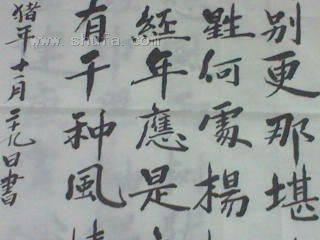 别更那堪
醒何處楊
經年應是
有千種風情
猪年十一月
日書
www.shufa.com